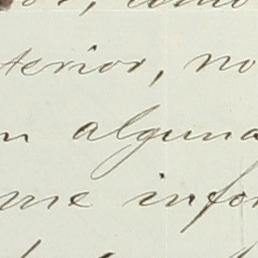 terior, no
n alguna
me infor